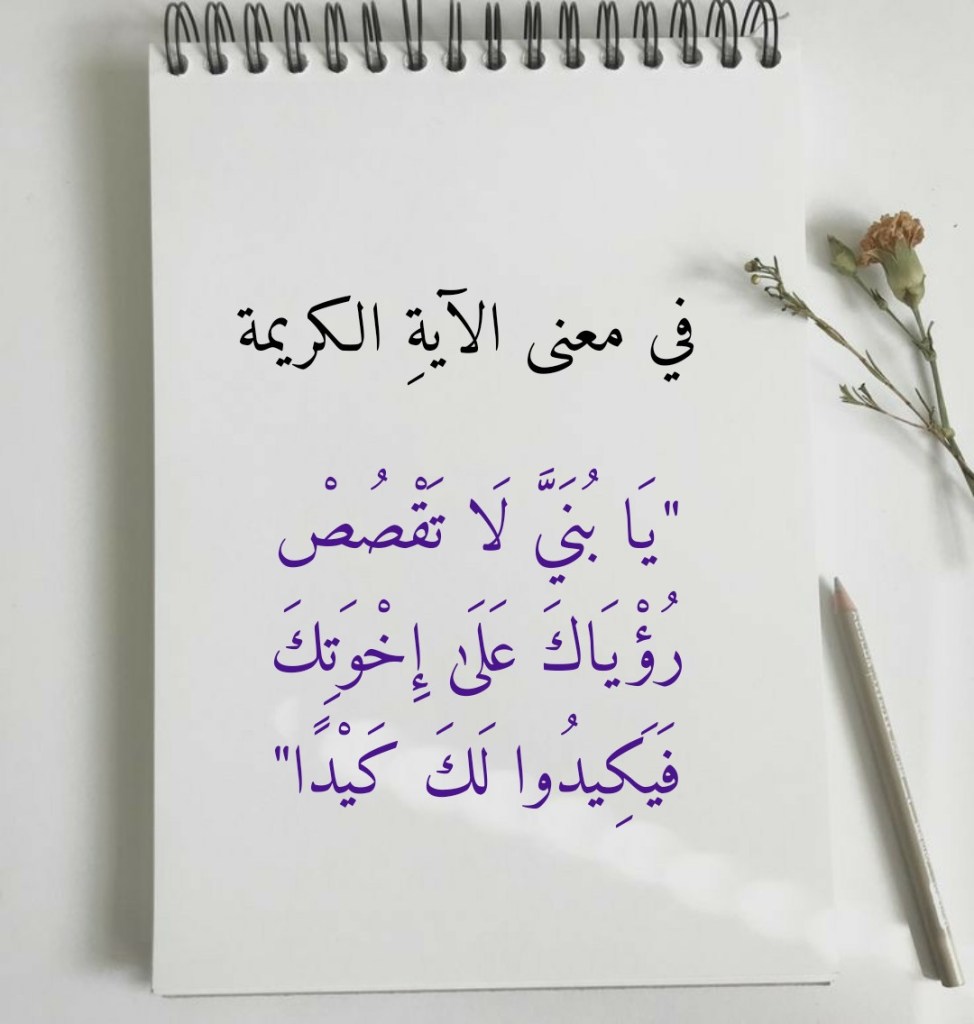 في معنى الآيةِ الكريمة
"يَا بُنَيَّ لَا تَقْصُصْ
رُؤْيَاكَ عَلَىٰ إِخْوَتِكَ
فَيَكِيدُوا لَكَ كَيْدًا"